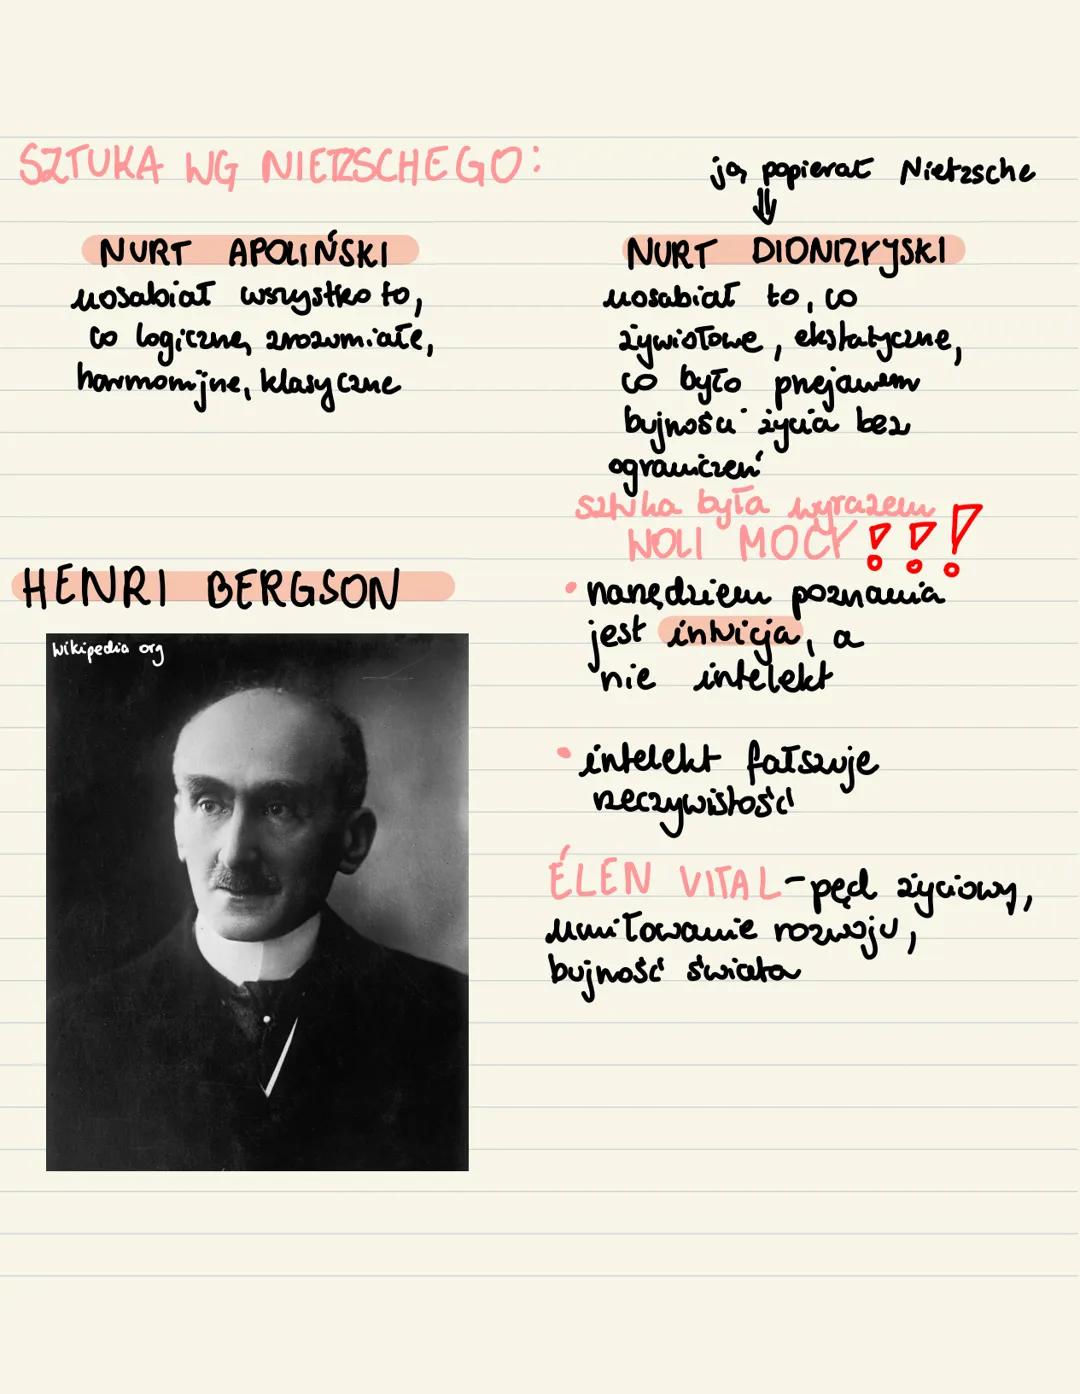 SZTUKA WG NIETZSCHEGO:
ją popierał Nietzsche
⇓
NURT APOLIŃSKI
uosabiał wszystko to,
co logiczne, zrozumiałe,
harmonijne, klasyczne
NURT DIONIZYJSKI
uosabiał to, co
żywiołowe, ekstatyczne,
co było przejawem
bujności życia bez
ograniczeń
sztuka była wyrazem
WOLI MOCY!!!
HENRI BERGSON
wikipedia org
• narzędziem poznania
jest intuicja, a
nie intelekt
• intelekt fałszuje
rzeczywistość
ÉLEN VITAL - pęd życiowy,
umiłowanie rozwoju,
bujność świata